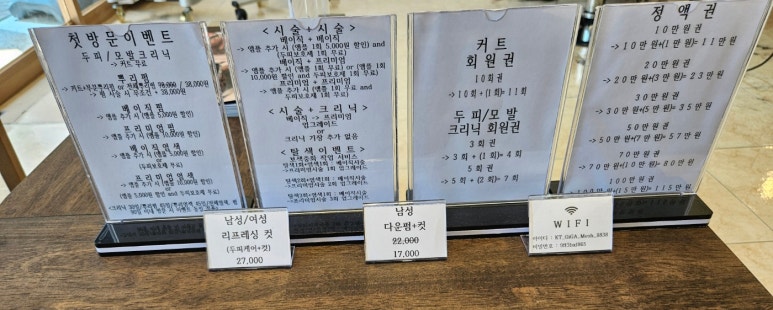 첫방문이벤트
두피/모발크리닉
-> 커트 무료
뿌리펌
38,000원
-> 펌 시술 시 무조건 + 38,000원
베이직펌
-> 앰플 추가 시 (앰플 5,000원 할인)
프리미엄펌
-> 앰플 추가 시 (앰플 10,000원 할인)
베이직염색
-> 앰플 추가 시 (앰플 5,000원 할인)
or
두피보호제 무료)
프리미엄염색
-> 앰플 추가 시
(앰플 5,000원 할인 and 두피보호제 무료)
<시술+시술>
베이직 + 베이직
-> 앰플 추가 시 (앰플 1회 5,000원 할인) and
(두피보호제 1회 무료)
베이직 + 프리미엄
-> 앰플 추가 시 (앰플 1회 무료) or (앰플 1회
10,000원 할인 and 두피보호제 1회 무료)
프리미엄 + 프리미엄
-> 앰플 추가 시 (앰플 1회 무료 and
두피보호제 1회 무료)
<시술+크리닉>
베이직 -> 프리미엄
업그레이드
or
크리닉 기장 추가 없음
<탈색이벤트>
커트
회원권
10회권
->10회+(1회)=11회
두피/모발
크리닉 회원권
3회권
->3회+(1회)=4회
5회권
->5회+(2회)=7회
정액권
10만원권
->10만원+(1만)=11만원
20만원권
->20만원+(3만)=23만원
30만원권
->30만원+(5만)=35만원
50만원권
->50만원+(7만)=57만원
70만원권
->70만원+(10만)=80만원
100만원권
->100만원+(15만)=115만원
남성/여성
리프레싱 컷
(두피케어+컷)
27,000
남성
다운펌+컷
22,000
17,000
WIFI
아이디 : KT_GiGA_Mesh_
비밀번호 :